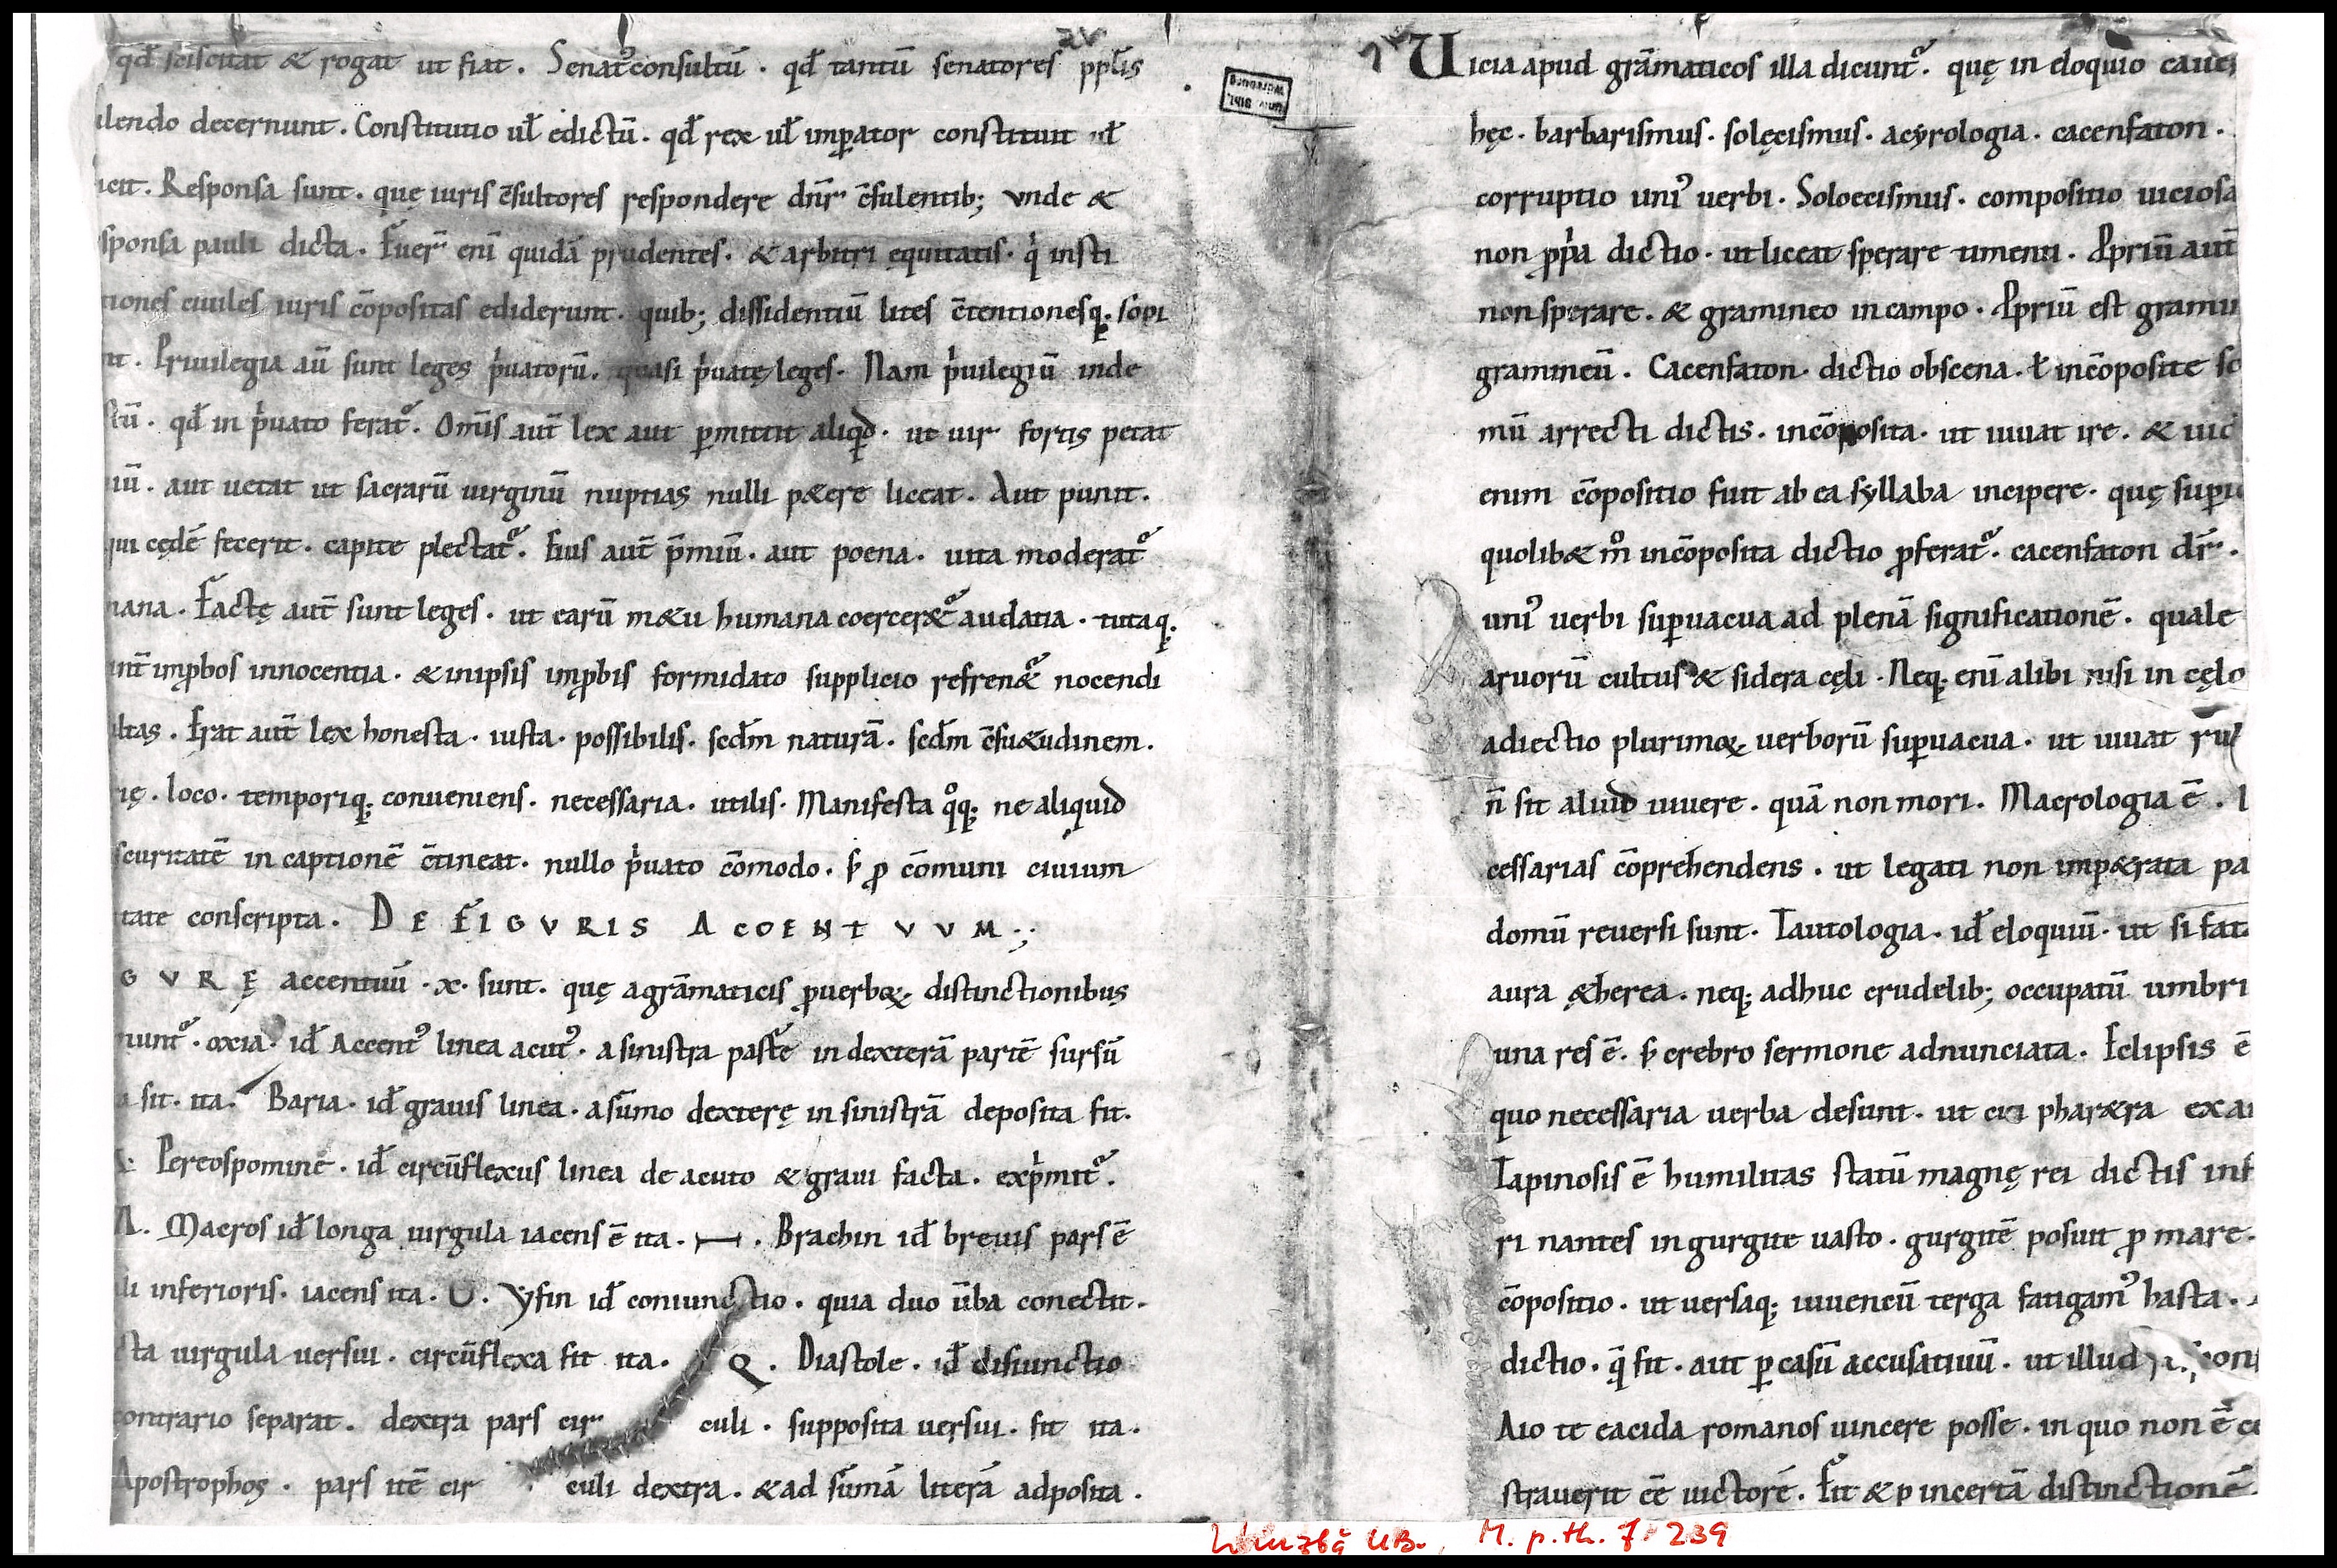 qđ sciscitat & rogat ut fiat. Senatꝰconsultū. qđ tantū senatores pplīs
ulendo decernunt. Constitutio ul̄ edictū. qđ rex ul̄ imꝑator constituit ul̄
icit. Responsa sunt. quę iuris c̄sultores respondere dn̄r c̄sulentib; vnde &
sponsa pauli dicta. Fuer̄ enī quidā prudentes. & arbitri ęquitatis. qͥ insti
tiones ciuiles iuris cōpositas ediderunt. quib; dissidentiū lites c̄tentionesq. sopi
nt. Priuilegia aū sunt leges pͥuatorū. quasi pͥuatę leges. Nam pͥuilegiū inde
ctū. qđ in pͥuato feratᷣ. Om̄is aut̄ lex aut ꝑmittit aliqͥd. ut uir fortis petat
iū. aut uetat ut sacrarū uirginū nuptias nulli p&ere liceat. Aut punit.
qui cędē fecerit. capite plectatᷣ. Eius aut̄ p̄miū. aut poena. uita moderatᷣ
mana. Factę aut̄ sunt leges. ut earū m&u humana coercer&ᷣ audatia. tutaq.
int̄ imꝓbos innocentia. & inipsis imꝓbis formidato supplicio refren&ᷣ nocendi
ultas. Erat aut̄ lex honesta. iusta. possibilis. secđm naturā. secđm c̄su&udinem.
rię. loco. temporiq; conueniens. necessaria. utilis. Manifesta qͦq; ne aliquid
scuritatē in captionē c̄tineat. nullo pͥuato cōmodo. s; ꝓ cōmuni ciuium
tate conscripta. DE FIGVRIS ACCENTVVM.;
GVRĘ accentuū .x. sunt. quę agrāmaticis ꝓuerboꝝ distinctionibus
nuntᷣ. oxia. iđ Accentꝰ linea acutꝰ. a sinistra parte in dexterā partē sursū
a fit. ita. / Baria. iđ grauis linea. a sūmo dexterę in sinistrā deposita fit.
Percospomine. iđ circūflexus linea de acuto & graui facta. expͥmitᷣ.
Λ. Macros iđ longa uirgula iacens ē ita. ⊢⊣. Brachin iđ breuis pars ē
uli inferioris. iacens ita. U. Yfin iđ coniunctio. quia duo ūba conectit.
cta uirgula uersui. circūflexa fit ita. Diastole. iđ disiunctio
contrario separat. dextra pars cir culi. supposita uersui. fit ita.
Apostrophos. pars itē cir culi dextra. & ad sūmā literā adposita.
Uicia apud grāmaticos illa dicuntᷣ. quę in eloquio caue
hęc. barbarismus. solęcismus. acyrologia. cacenfaton.
corruptio uniꝰ uerbi. Soloecismus. compositio uiciosa
non ꝓpͥa dictio. ut liceat sperare timenti. Ꝓpriū aut̄
non sperare. & gramineo in campo. Ꝓpriū est grami
gramineū. Cacenfaton. dictio obscena. ł incōposite so
mū arrecti dictis. incōposita. ut iuuat ire. & uic
enim cōpositio fuit ab ea syllaba incipere. quę suꝑi
quolib& mͦ incōposita dictio ꝓferatᷣ. cacenfaton dr̄.
uniꝰ uerbi suꝑuacua ad plenā significationē. quale
aruorū cultus & sidera cęli. Neq; enī alibi nisi in cęlo
adiectio plurimoꝝ uerborū suꝑuacua. ut uiuat
n̄ sit aliud uiuere. quā non mori. Macrologia ē. l
cessarias cōprehendens. ut legati non imp&rata pa
domū reuersi sunt. Tautologia. iđ eloquiū. ut si fat
aura ętherea. neq; adhuc crudelib; occupatū umbri
una res ē. s; crebro sermone adnunciata. Eclipsis ē
quo necessaria uerba desunt. ut cui phar&ra exa
Tapinosis ē humilitas statū magnę rei dictis inf
ri nantes in gurgite uasto. gurgitē posuit ꝓ mare.
cōpositio. ut uersaq; iuuencū terga fatigamꝰ hasta.
dictio. q̄ fit. aut ꝑ casū accusatiuū. ut illud
Aio te eacida romanos uincere posse. in quo non ē ce
strauerit eē uictorē. Fit & ꝑ incertā distinctionē
Univ. Bibl.
Würzburg
Würzbg UB., M. p. th. f. 239